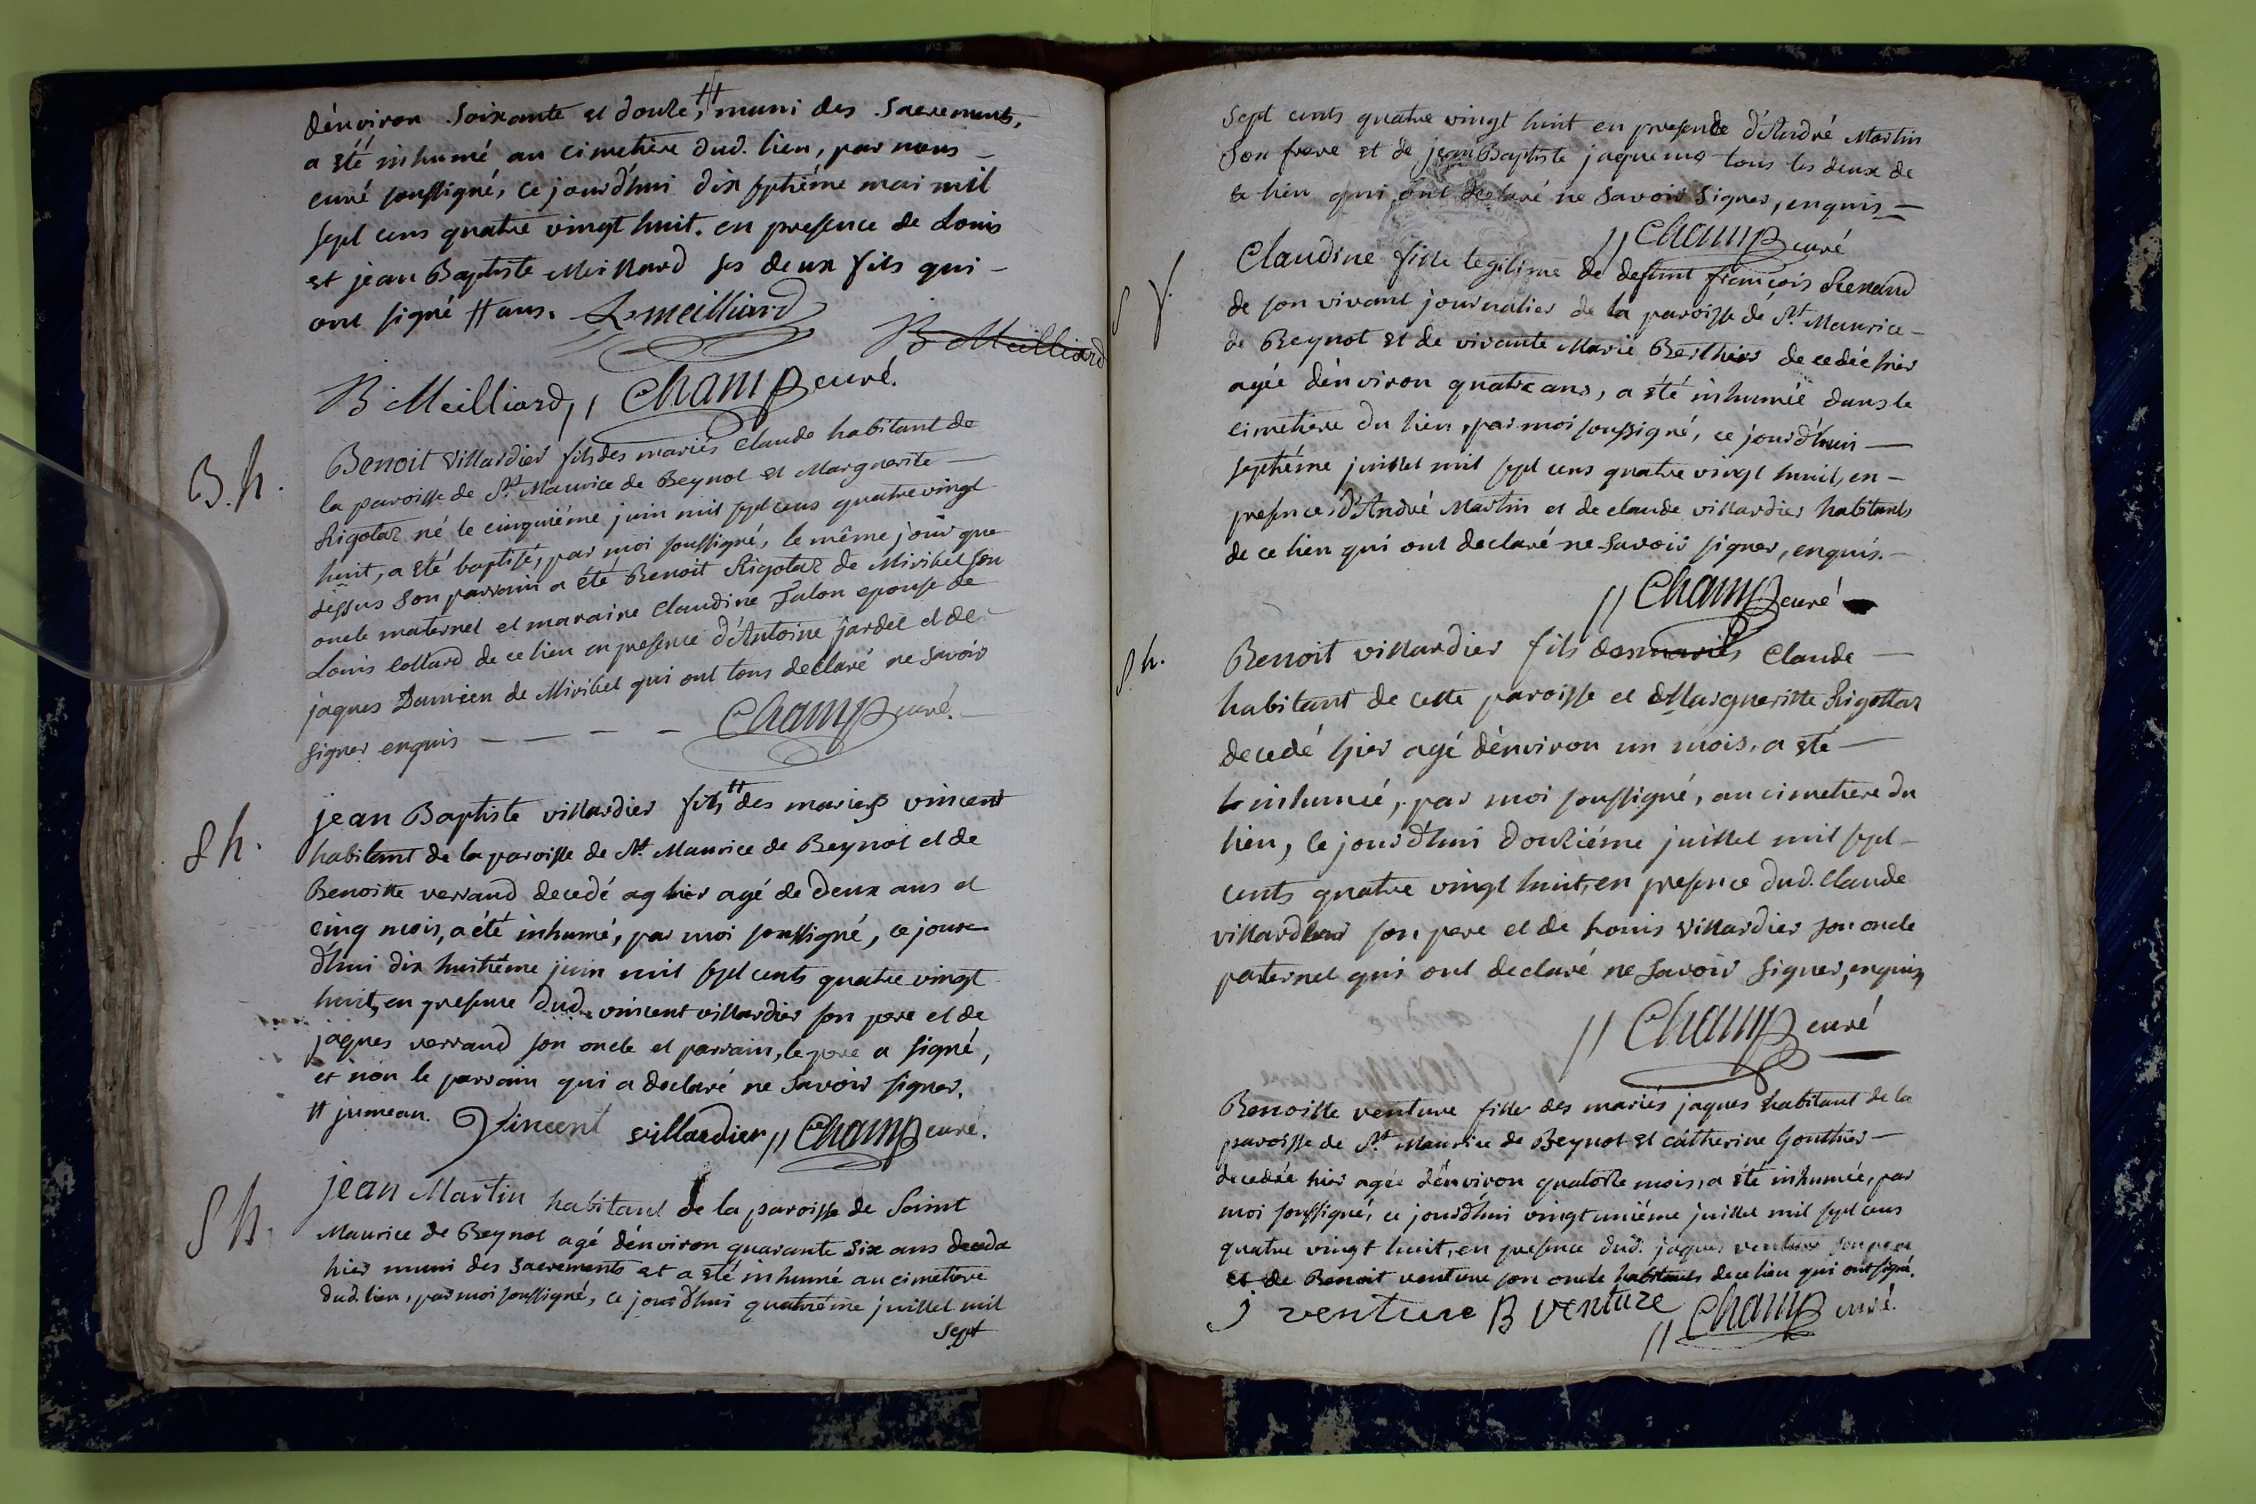 d'énviron soixante et douze, # muni des sacrements,
a été inhumé au cimetière dud. lieu, par nous
curé soussigné, ce jourd'hui dix septiéme mai mil
sept cens quatre vingt huit. en presence de Louis
et jean Baptiste Meillard ses deux fils qui
ont signé # ans. L meilliard
B Meilliard
B Meilliard, // Champ curé.
B. h.
Benoit villardier fils des mariés Claude habitant de
la paroisse de St. Maurice de Beynot et Marguerite
Rigotaz né le cinquiéme juin mil sept cens quatre vingt
huit, a été baptisé, par moi soussigné, le même jour que
dessus son parrain a été Benoit Rigotaz de Miribel son
oncle maternel et maraine Claudine Falon epouse de
Louis Collard de ce lieu en presence d'Antoine jardet et de
jaques Damien de Miribel qui ont tous declaré ne savoir
signer enquis — — — — Champ curé.
S h.
jean Baptiste villardier fils # des mariés vincent
habitant de la paroisse de St. Maurice de Beynot et de
Benoitte verrand decedé ag hier agé de deux ans et
cinq mois, a été inhumé, par moi soussigné, ce jour
d'hui dix huitiéme juin mil sept cents quatre vingt
huit, en presence dud. vincent villardier son pere et de
jaques verrand son oncle et parrain, le pere a signé,
et non le parrain qui a declaré ne savoir signer.
# jumeau. Vincent villardier // Champ curé.
S h.
jean Martin habitant de la paroisse de Saint
Maurice de Beynot agé d'énviron quarante six ans deceda
hier muni des sacrements et a été inhumé au cimetiere
dud. lieu, par moi soussigné, ce jourd'hui quatriéme juillet mil
sept
sept cents quatre vingt huit en presence d'André Martin
son frere et de jean Baptiste jaquemo tous les deux de
ce lieu qui ont declaré ne savoir signer, enquis —
// Champ curé
S f.
Claudine fille legitime de defunt françois Renaud
de son vivant journalier de la paroisse de St. Maurice
de Beynot et de vivante Marie Berthier decedée hier
agée d'énviron quatre ans, a été inhumée dans le
cimetiere du lieu, par moi soussigné, ce jourd'hui —
septiéme juillet mil sept cens quatre vingt huit, en
presence d'André Martin et de claude villardier habitants
de ce lieu qui ont declaré ne savoir signer, enquis.
// Champ curé
S. h.
Benoit villardier fils des mariés Claude —
habitant de cette paroisse et Marguerite Rigottaz
decedé hier agé d'énviron un mois, a été —
inhumé, par moi soussigné, au cimetiere du
lieu, ce jourd'hui douziéme juillet mil sept
cents quatre vingt huit, en presence dud. Claude
villardier son pere et de Louis villardier son oncle
paternel qui ont declaré ne savoir signer, enquis,
// Champ curé
Benoitte venture fille des mariés jaques habitant de la
paroisse de St. Maurice de Beynot et catherine Gonthier —
decedée hier agée d'énviron quatorze mois, a été inhumée, par
moi soussigné, ce jourd'hui vingt uniéme juillet mil sept cens
quatre vingt huit, en presence dud. jaques venture son pere
et de Benoit venture son oncle habitants de ce lieu qui ont signé.
j venture B venture // Champ curé.